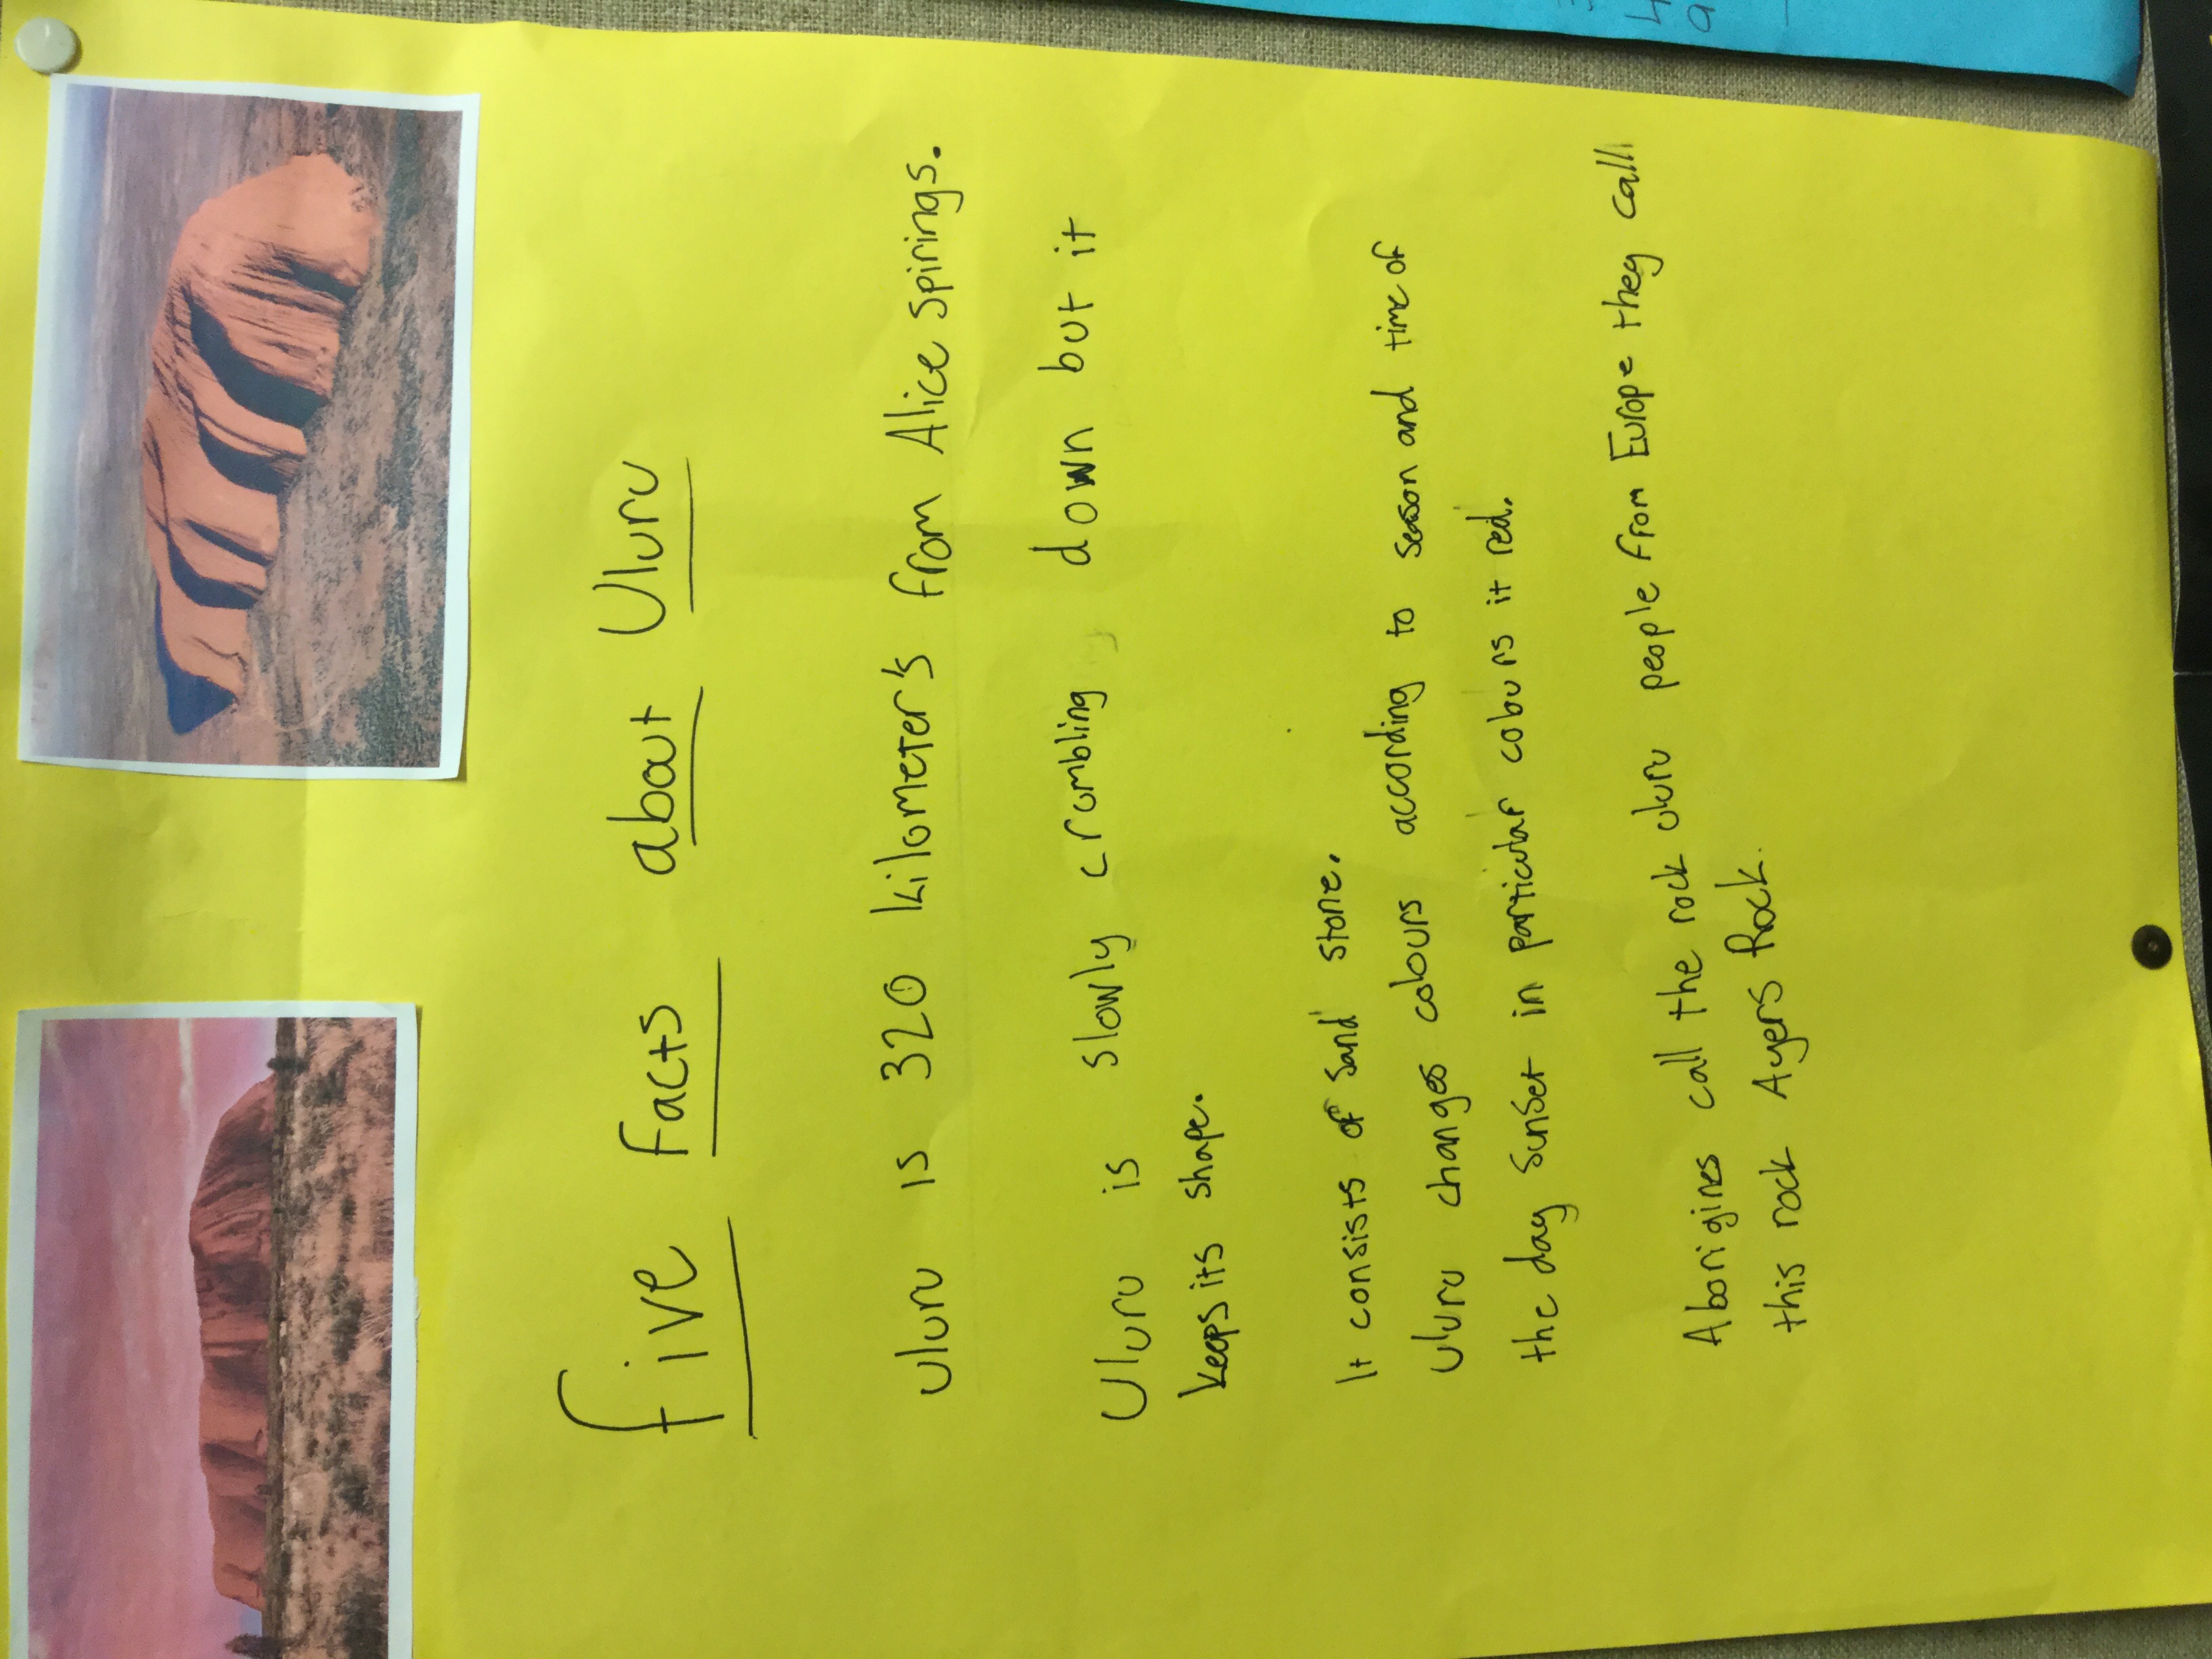 Five facts about Uluru
Uluru is 320 kilometer's from Alice spirings.
Uluru is slowly crumbling down but it
keeps its shape.
It consists of sand stone.
Uluru changes colours according to season and time of
the day sunset in particular colours it red.
Aborigines call the rock uluru people from Europe they call
this rock Ayers Rock.